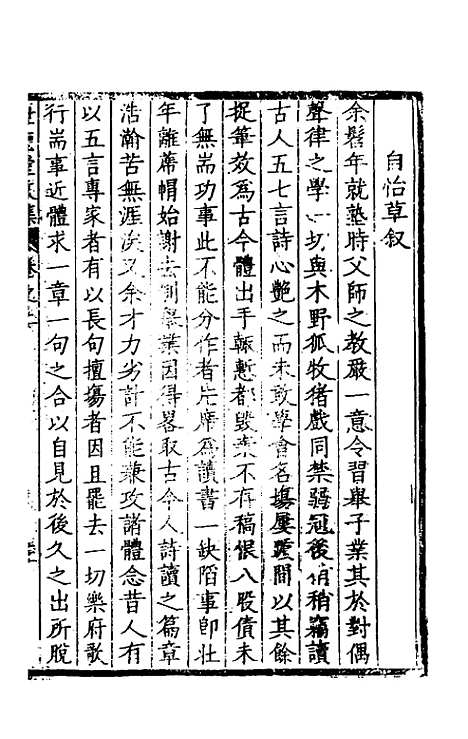 自怡草叙
余髫年就塾時父師之教嚴一意令習舉子業其於對偶
聲律之學一切與木野狐牧猪戲同禁弱冠後稍稍竊讀
古人五七言詩心艷之而未敢學會名場屢躓間以其餘
捉筆效爲古今體出手輒慙都毀棄不存稿恨八股債未
了無耑功事此不能分作者片席爲讀書一缺陷事即壯
年離蓆帽始謝去制舉業因得畧取古今人詩讀之篇章
浩瀚苦無涯涘又余才力劣計不能兼攻諸體念昔人有
以五言專家者有以長句擅塲者因且罷去一切樂府歌
行耑事近體求一章一句之合以自見於後久之出所脫
堂文集 卷之